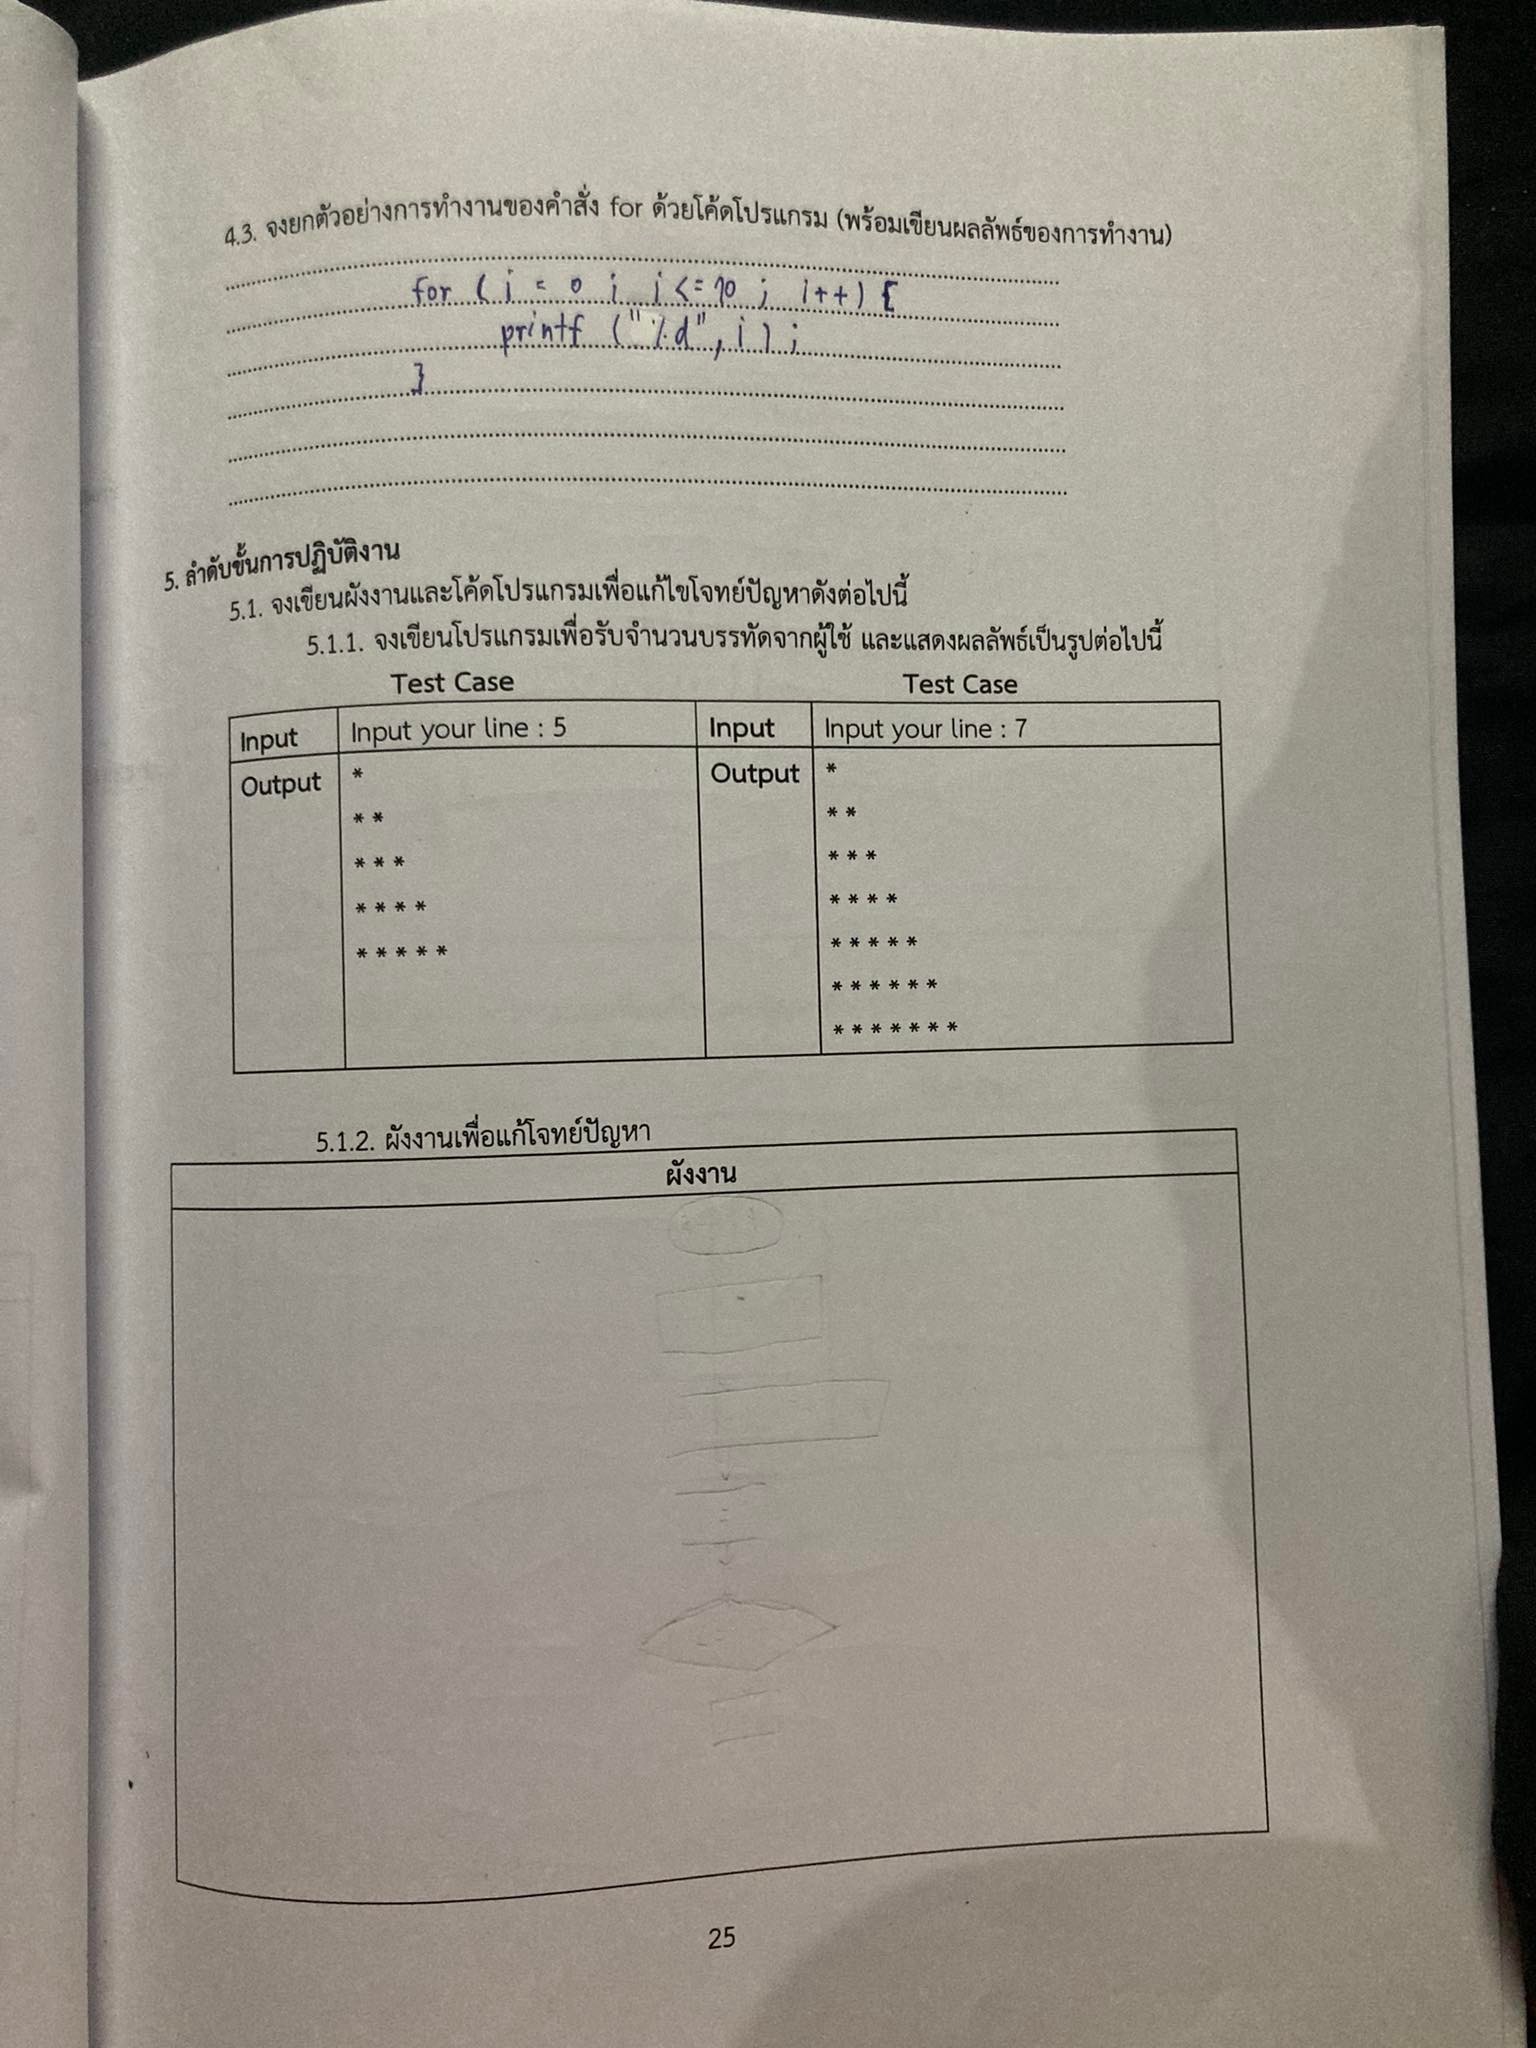 4.3. จงยกตัวอย่างการทำงานของคำสั่ง for ด้วยโค้ดโปรแกรม (พร้อมเขียนผลลัพธ์ของการทำงาน)
for ( i = 0 ; i <= 10 ; i++) {
printf ("%d", i ) ;
}
5. ลำดับขั้นการปฏิบัติงาน
5.1. จงเขียนผังงานและโค้ดโปรแกรมเพื่อแก้ไขโจทย์ปัญหาดังต่อไปนี้
5.1.1. จงเขียนโปรแกรมเพื่อรับจำนวนบรรทัดจากผู้ใช้ และแสดงผลลัพธ์เป็นรูปต่อไปนี้
Test Case Test Case
Input Input your line : 5 Input Input your line : 7
Output * Output *
* * * *
* * * * * *
* * * * * * * *
* * * * * * * * * *
* * * * * *
* * * * * * *
5.1.2. ผังงานเพื่อแก้โจทย์ปัญหา
ผังงาน
25